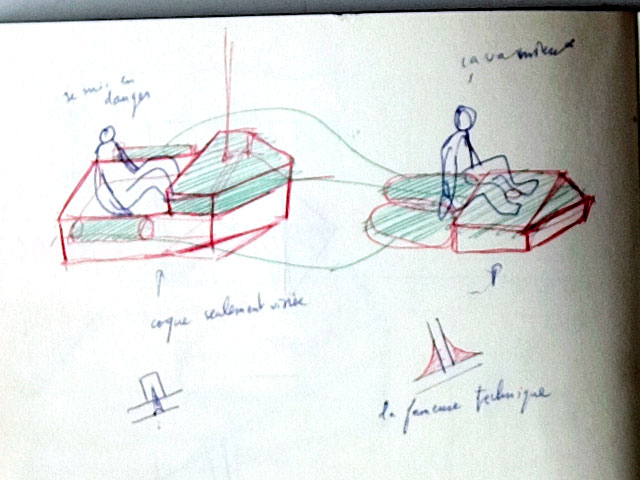 danger
ça va mieux
coque seulement vissée
la fameuse technique